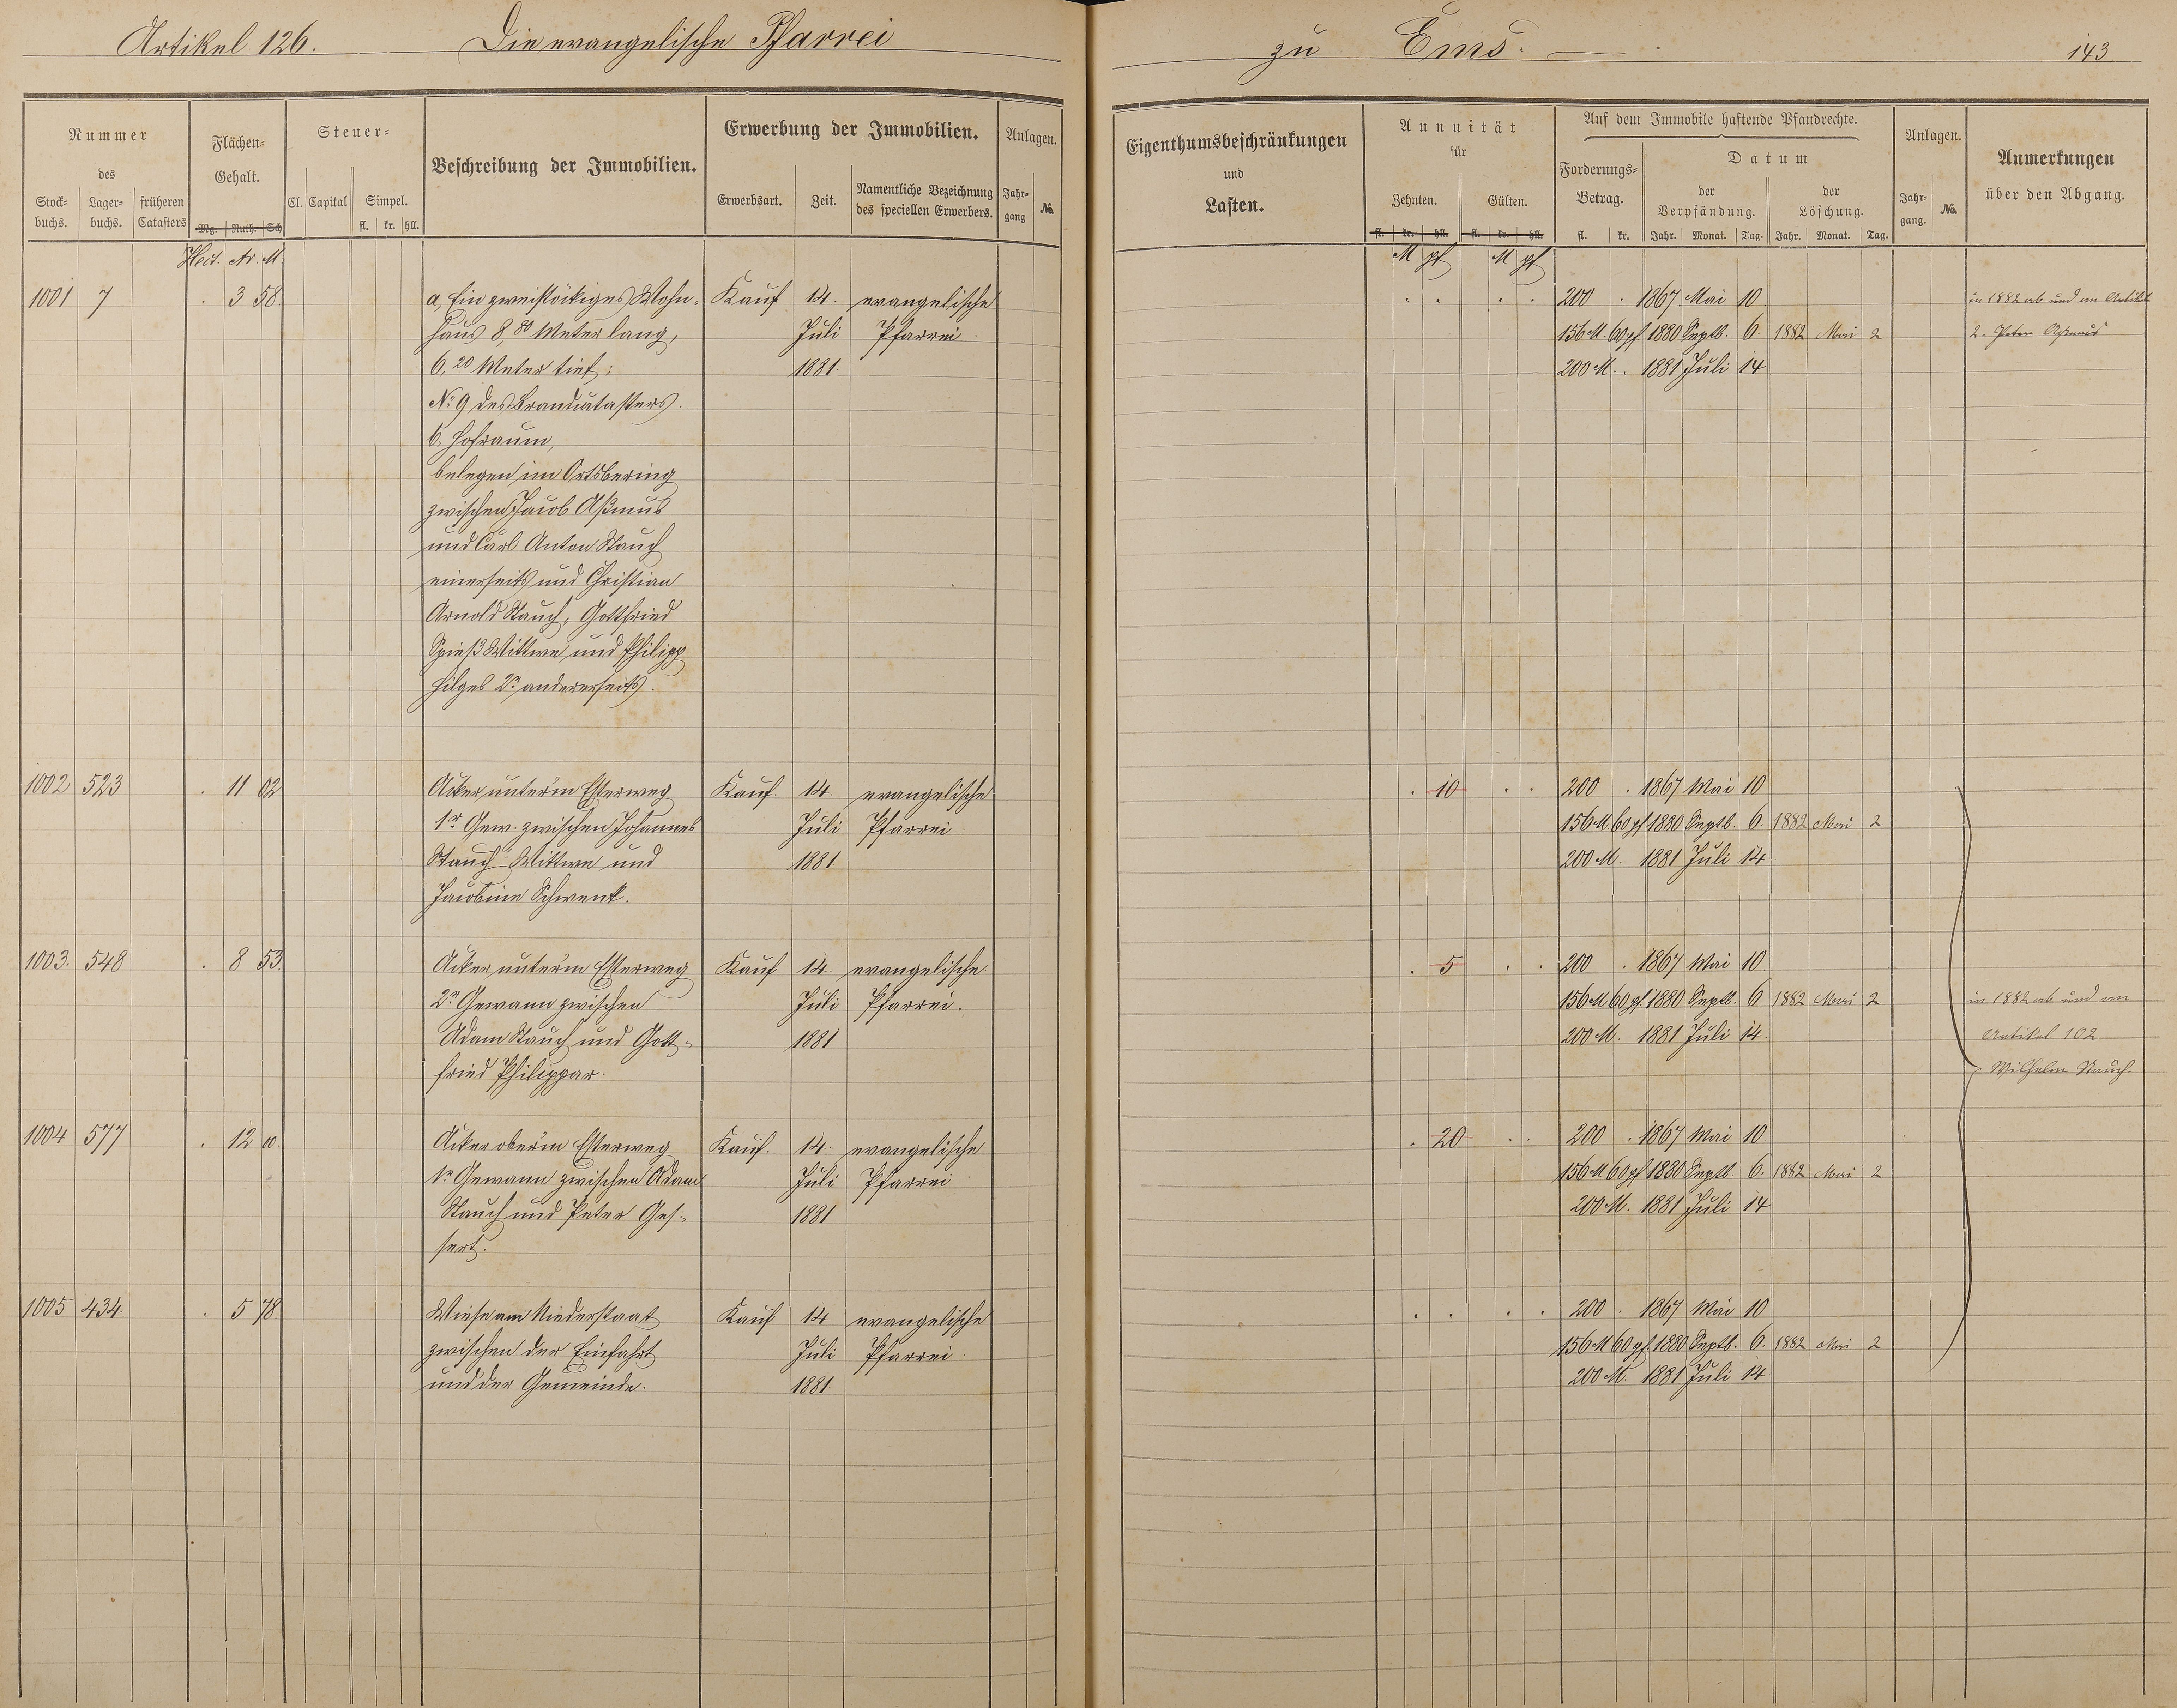 Artikel 126. Die evangelische Pfarrei zu Ems. 143
Nummer des
Stock-buchs. Lager-buchs. früheren Catasters
Flächen-Gehalt.
Mg. Ruth. Sch
Steuer-
Cl. Capital Simpel.
fl. kr. hll.
Beschreibung der Immobilien.
Erwerbung der Immobilien.
Erwerbsart. Zeit. Namentliche Bezeichnung des speciellen Erwerbers.
Anlagen.
Jahr-gang No.
Eigenthumsbeschränkungen und Lasten.
Annuität für
Zehnten. Gülten.
fl. kr. hll. fl. kr. hll.
Auf dem Immobile haftende Pfandrechte.
Forderungs-Betrag.
fl. kr.
Datum
der Verpfändung. der Löschung.
Jahr. Monat. Tag. Jahr. Monat. Tag.
Anlagen.
Jahr-gang. No.
Anmerkungen über den Abgang.
Hect. Ar. M. M pf M pf
1001 7 . 3 58. a, Ein zweistöckiges Wohn- Kauf 14. evangelische . . . . 200 . 1867 Mai 10. in 1882 ab und an Artikel
haus 8,80 Meter lang, Juli Pfarrei. 156 M. 60 pf 1880 Septb. 6. 1882 Mai 2 2. Peter Aßmus
6,20 Meter tief; 1881 200 M. . 1881 Juli 14
No 9 des Brandcatasters.
b, Hofraum,
belegen im Ortsbering
zwischen Jacob Aßmus
und Carl Anton Stauch
einerseits und Christian
Arnold Stauch, Gottfried
Spieß Wittwe und Philipp
Hilges 2r andererseits.
1002 523 . 11 02 Acker unter'm Esterweg Kauf. 14. evangelische . 10 . . 200 . 1867 Mai 10
1r Gew. zwischen Johannes Juli Pfarrei. 156 M. 60 pf 1880 Septb. 6. 1882 Mai 2
Stauch Wittwe und 1881 200 M. 1881 Juli 14
Jacobine Schwenk.
1003. 548 . 8 53. Acker unter'm Esterweg Kauf 14. evangelische . 5 . . 200 . 1867 Mai 10.
2r Gewann zwischen Juli Pfarrei. 156 M 60 pf. 1880 Septb. 6 1882 Mai 2 in 1882 ab und an
Adam Stauch und Gott- 1881 200 M. 1881 Juli 14. Artikel 102
fried Philippar. Wilhelm Stauch
1004 577 . 12 00. Acker ober'm Esterweg Kauf. 14 evangelische . 20 . . 200 . 1867 Mai 10
1r Gewann zwischen Adam Juli Pfarrei 156 M 60 pf 1880 Septb. 6. 1882 Mai 2
Stauch und Peter Ges- 1881 200 M. 1881 Juli 14
sert.
1005 434 . 5 78. Wiese am Niederstaat Kauf 14 evangelische . . . . 200 . 1867 Mai 10
zwischen der Einfahrt Juli Pfarrei. 156 M 60 pf. 1880 Septb. 6. 1882 Mai 2
und der Gemeinde. 1881 200 M. 1881 Juli 14